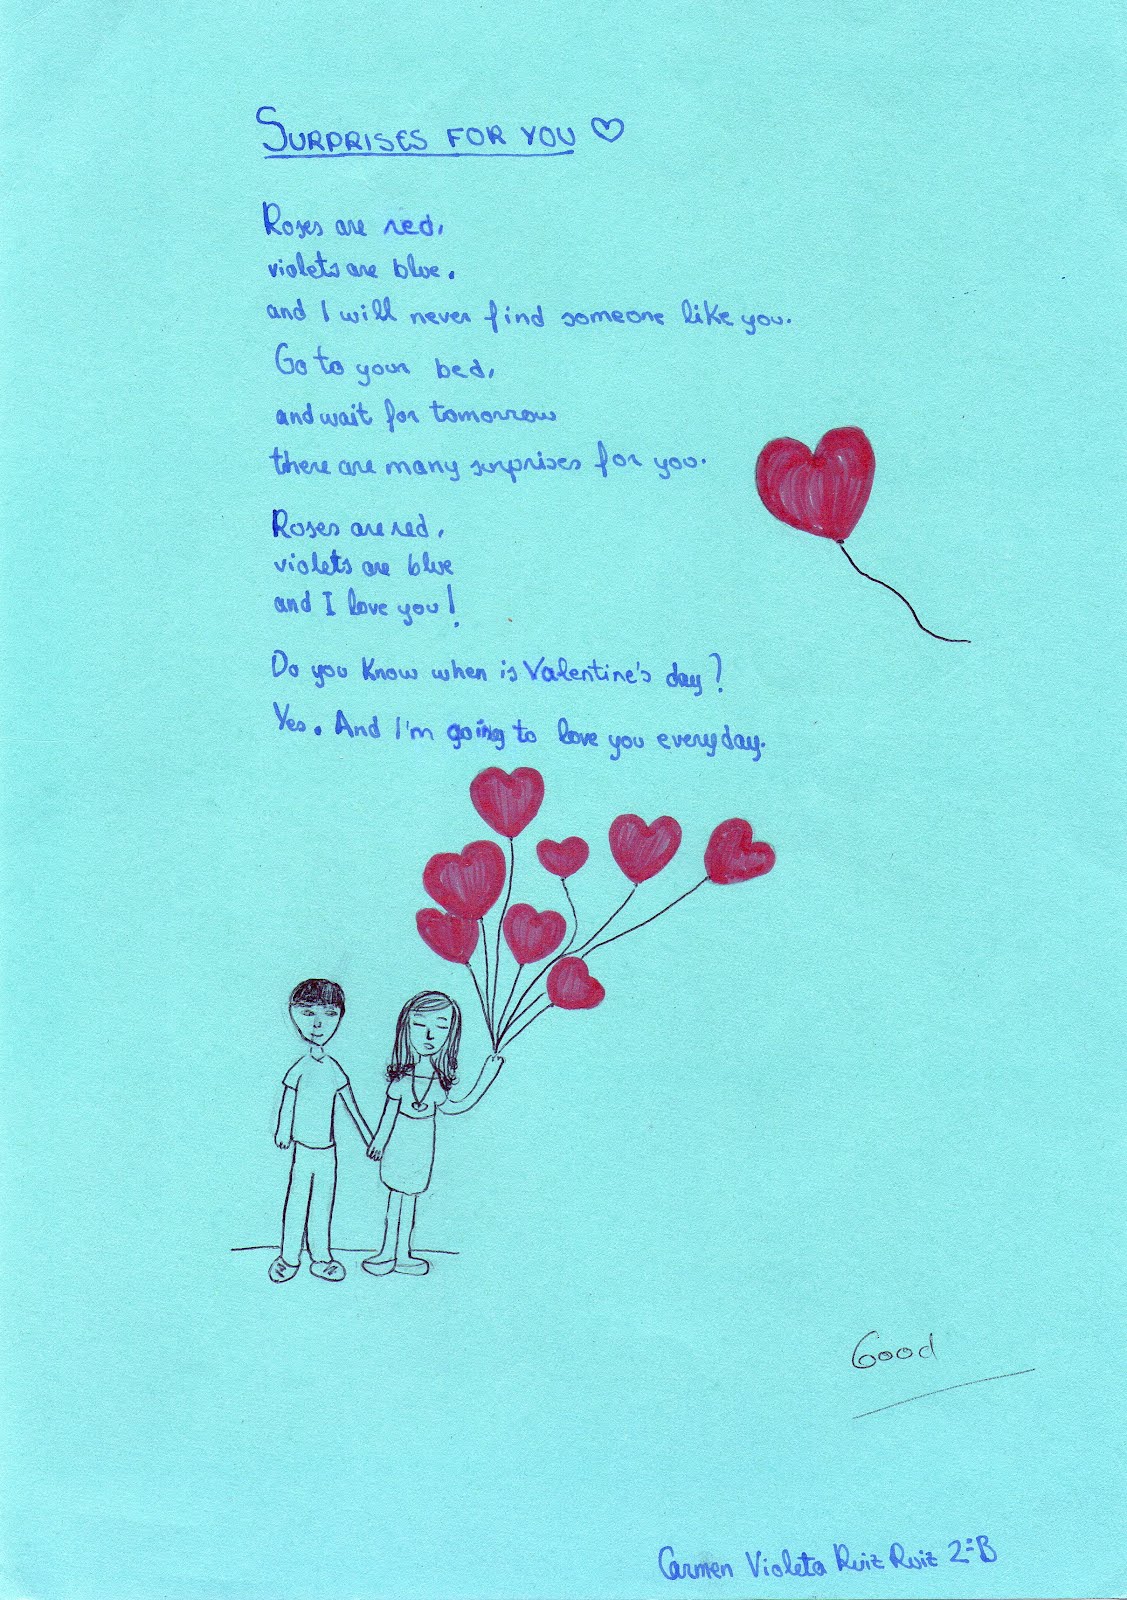 SURPRISES FOR YOU ♡
Roses are red,
violets are blue.
and I will never find someone like you.
Go to your bed,
and wait for tomorrow
there are many surprises for you.
Roses are red,
violets are blue
and I love you!
Do you know when is Valentine's day?
Yes. And I'm going to love you everyday.
Good
Carmen Violeta Ruiz Ruiz 2ºB